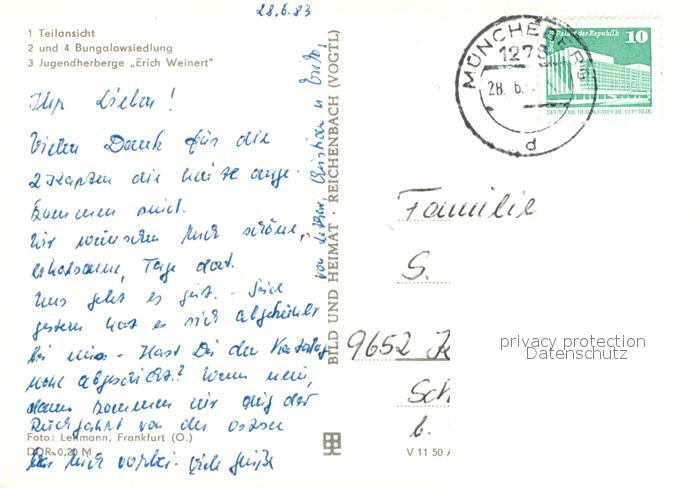 28.6.83
1 Teilansicht
2 und 4 Bungalowsiedlung
3 Jugendherberge „Erich Weinert"
Ihr Lieben!
Vielen Dank für die
2 Karten die heute ange-
kommen sind.
Wir wünschen Euch schöne,
erholsame, Tage dort.
Uns geht es gut. - Seit
gestern hat es sich abgekühlt
bei uns - Hast Du den Katalog
abgeschickt? Wenn nein,
dann kommen wir auf der
Rückfahrt von der Ostsee
bei Euch vorbei. Viele Grüße
von Christian u.
Foto: Lehmann, Frankfurt (O.)
DDR 0,20 M
BILD UND HEIMAT · REICHENBACH (VOGTL)
V 11 50 A
MÜNCHEBERG
1278
28. 6.
d
Palast der Republik
10
DEUTSCHE DEMOKRATISCHE REPUBLIK
Familie
S.
9652
Sch
b.
privacy protection
Datenschutz